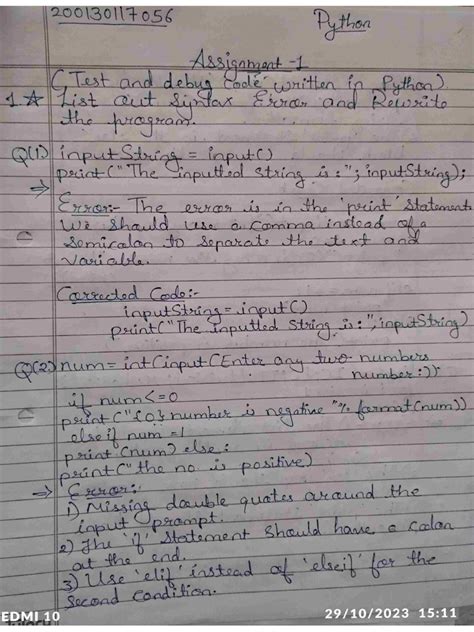 200130117056
Python
Assignment-1
(Test and debug code written in Python)
1☆ List out Syntax Error and Rewrite
the program.
Q(1) inputString = input()
print("The inputted string is:"; inputString);
⇒
Error:- The error is in the 'print' statement
We should use a comma instead of a
semicolon to separate the text and
variable.
Corrected Code:-
inputString = input()
print("The inputted string is:", inputString)
Q(2) num = int(input(Enter any two numbers
number:));
if num<=0
print("{0} number is negative "% format(num))
elseif num = 1
print(num) else:
print("the no is positive)
⇒ Error:
1) Missing double quotes around the
input prompt.
2) The 'if' statement should have a colon
at the end.
3) Use 'elif' instead of 'elseif' for the
second condition.
EDMI 10
29/10/2023 15:11